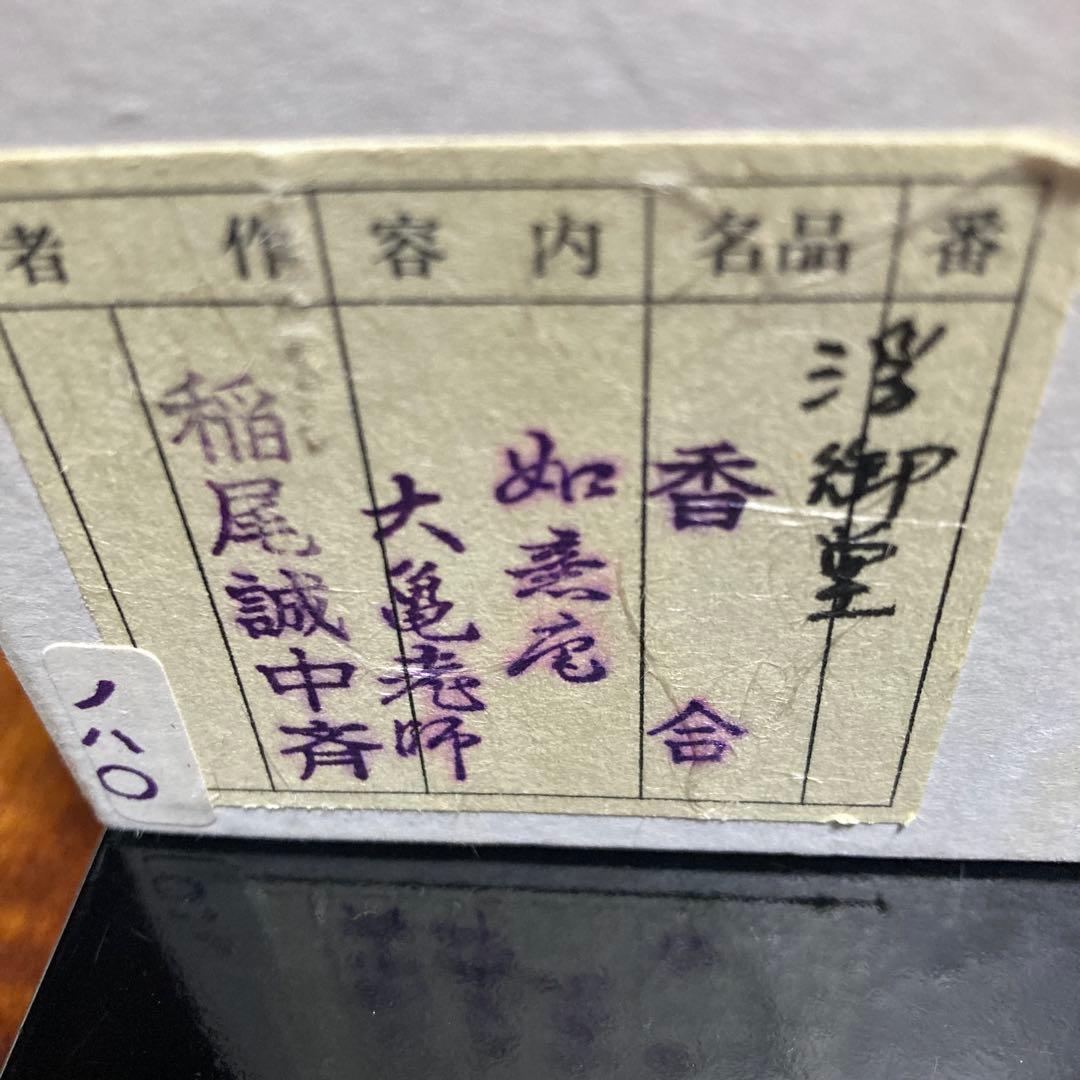 番
品名
内容
作者
浮御堂
香合
如意庵
大亀老師
稲尾誠中斉
ノハ〇